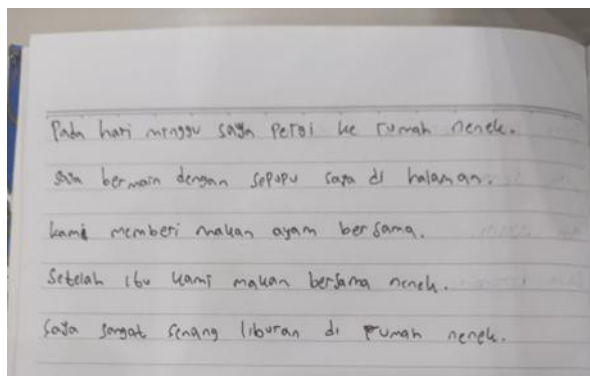 Pada hari minggu saya Pergi ke rumah nenek.
saya bermain dengan sepupu saya di halaman.
kami memberi makan ayam bersama.
Setelah ibu kami makan bersama nenek.
saya sangat senang liburan di rumah nenek.